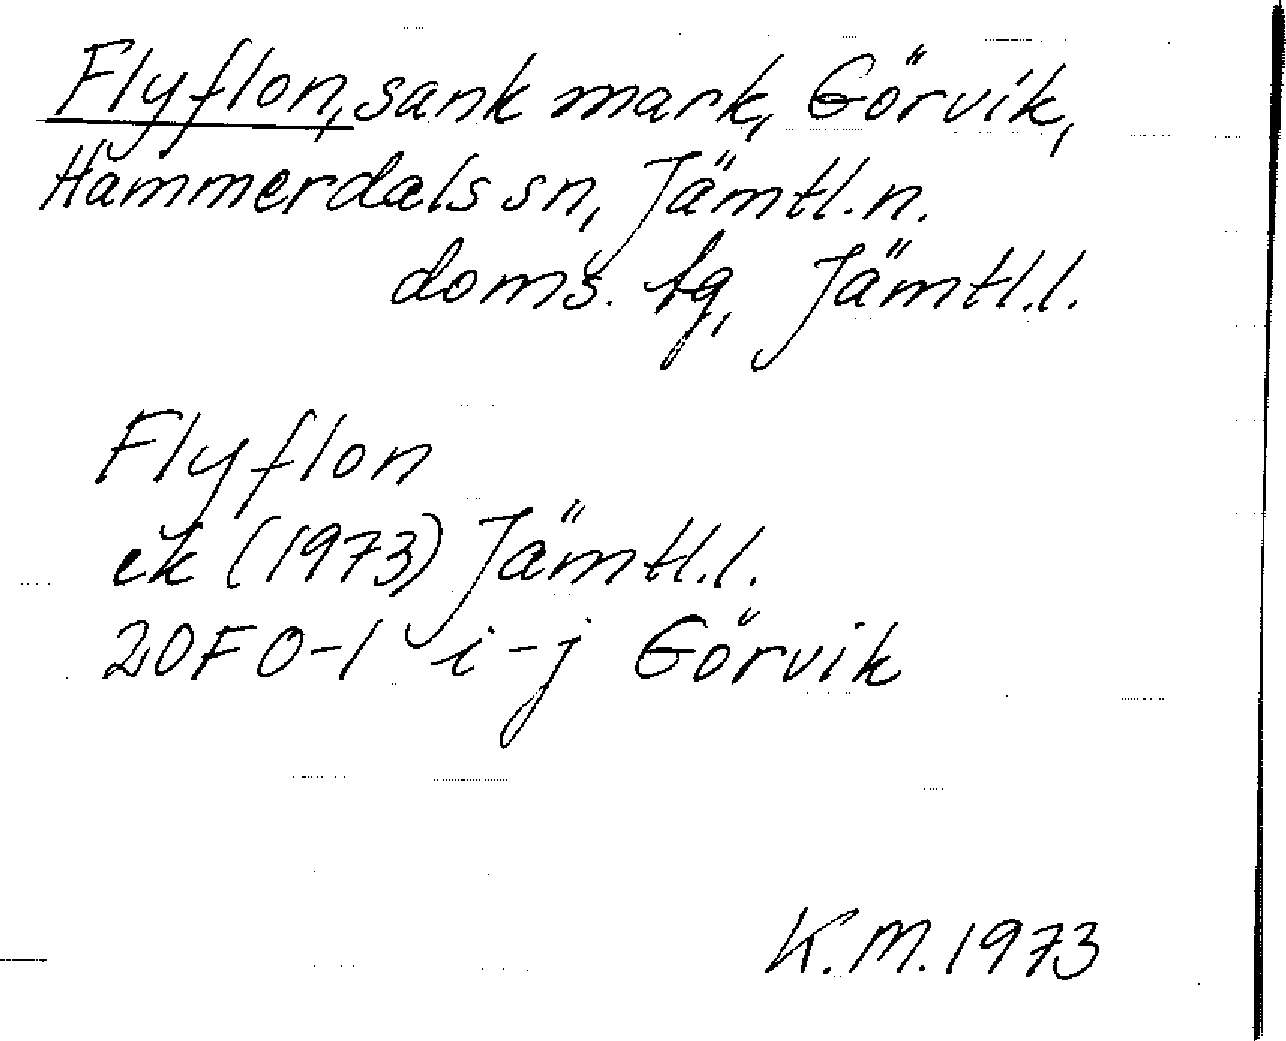 Flyflon, sank mark, Görvik,
Hammerdals sn, Jämtl. n.
doms. tg, Jämtl. l.
Flyflon
ek (1973) Jämtl. l.
20F 0-1 i-j Görvik
K.M. 1973